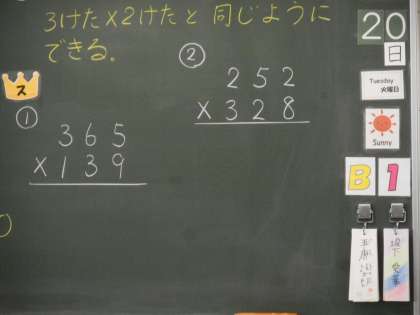 3けた×2けたと同じように
できる。
ス
①
365
×139
②
252
×328
20
日
Tuesday
火曜日
Sunny
B1